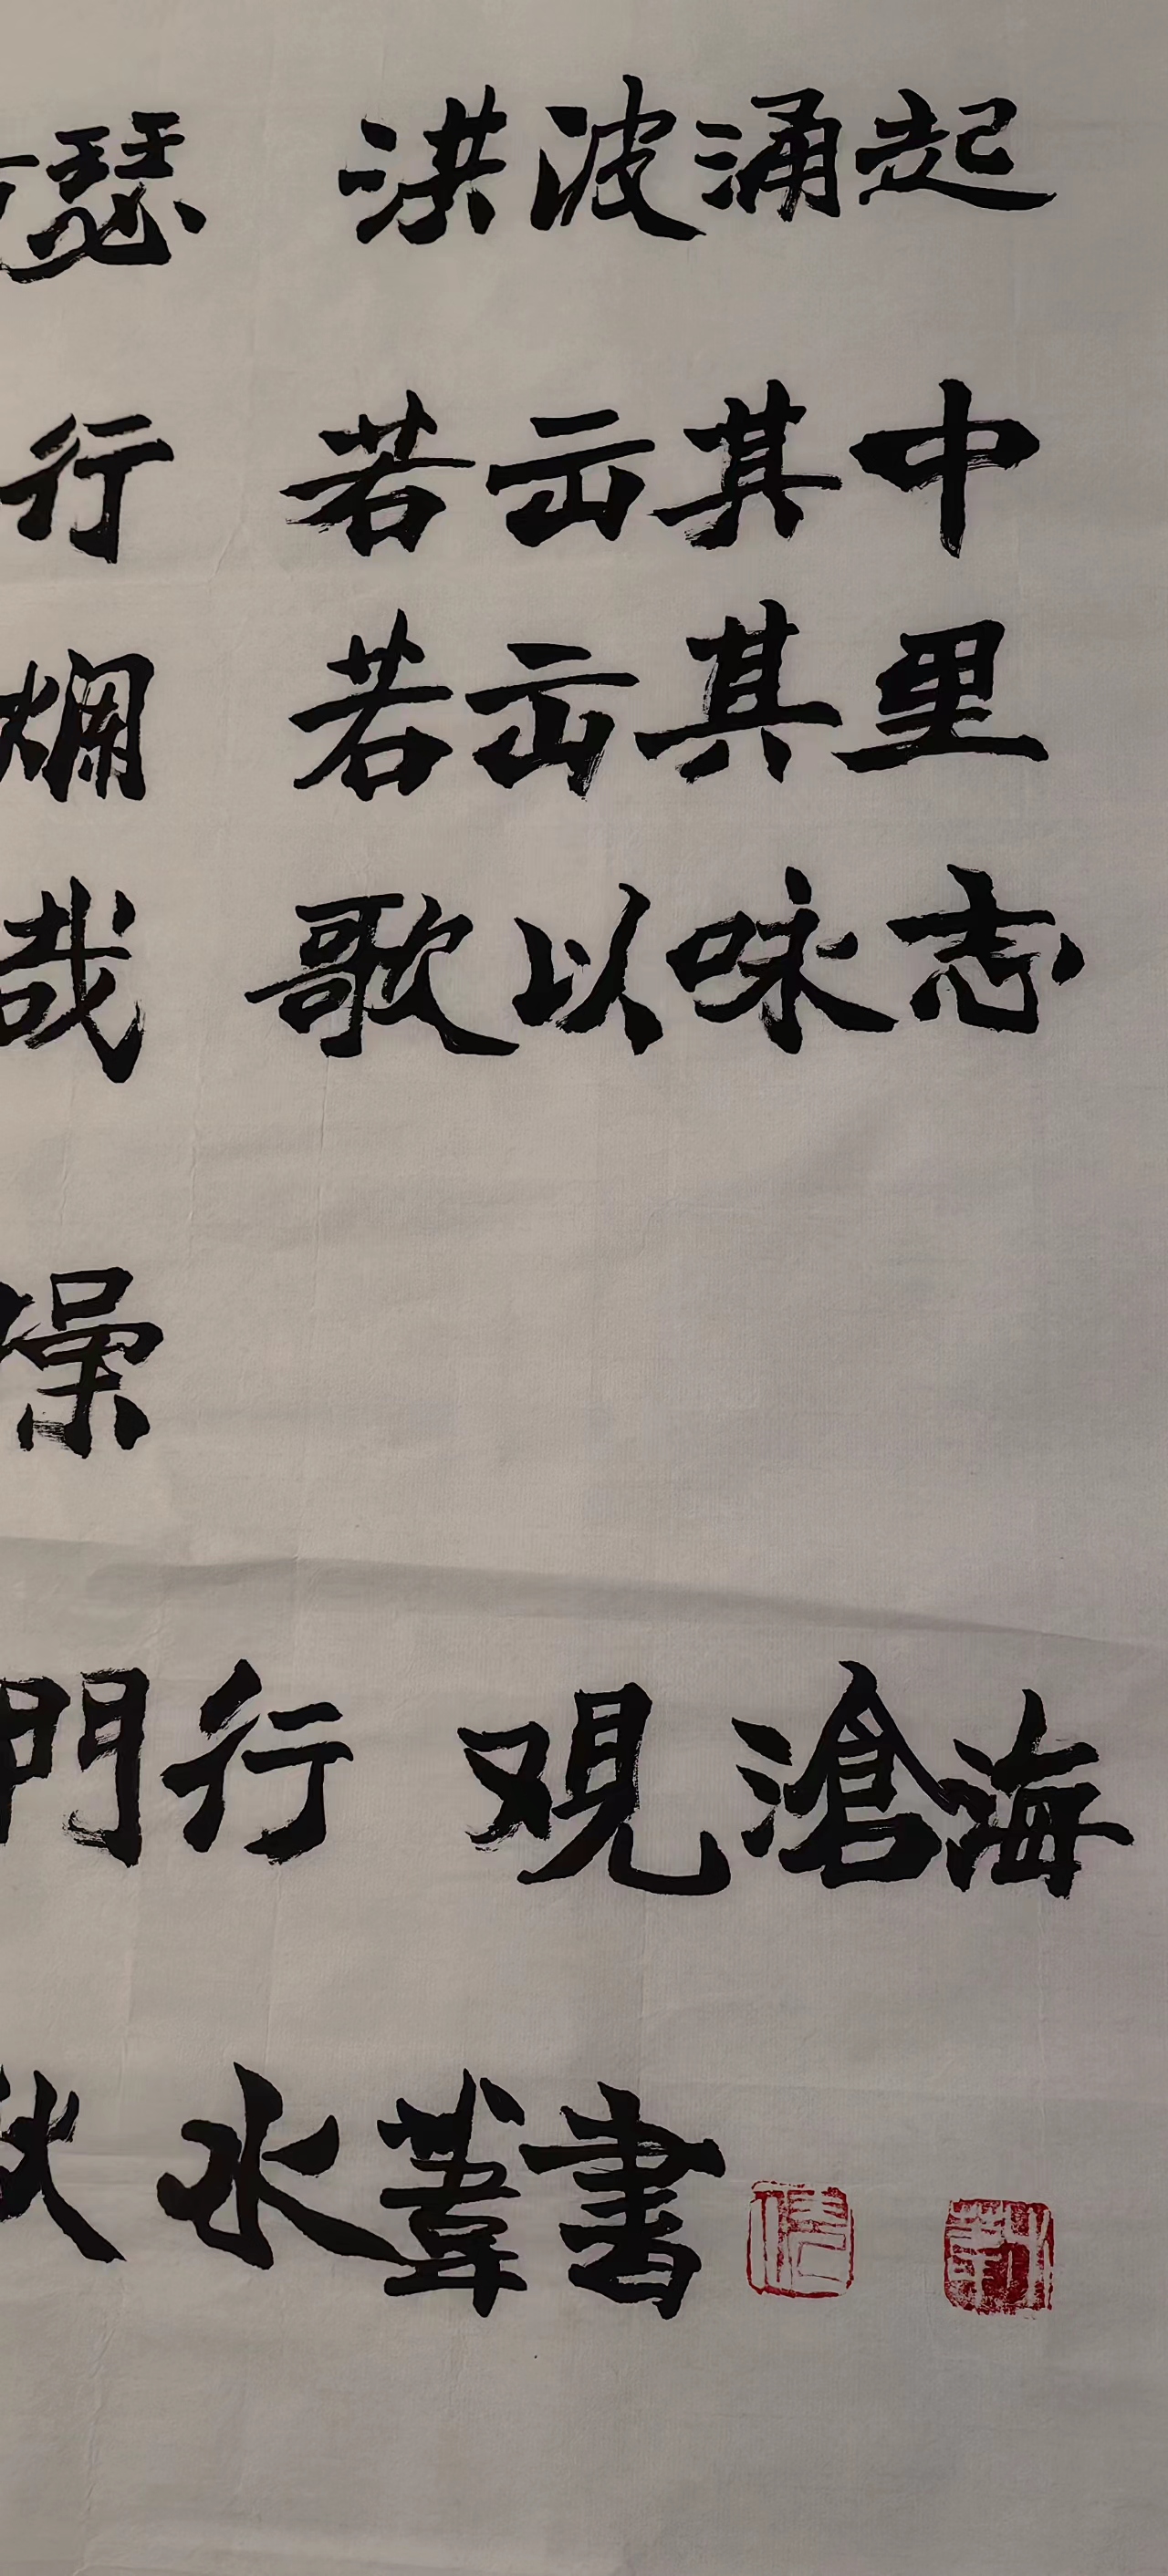 瑟 洪波涌起
行 若出其中
爛 若出其里
哉 歌以咏志
操
門行 观滄海
秋水葦書